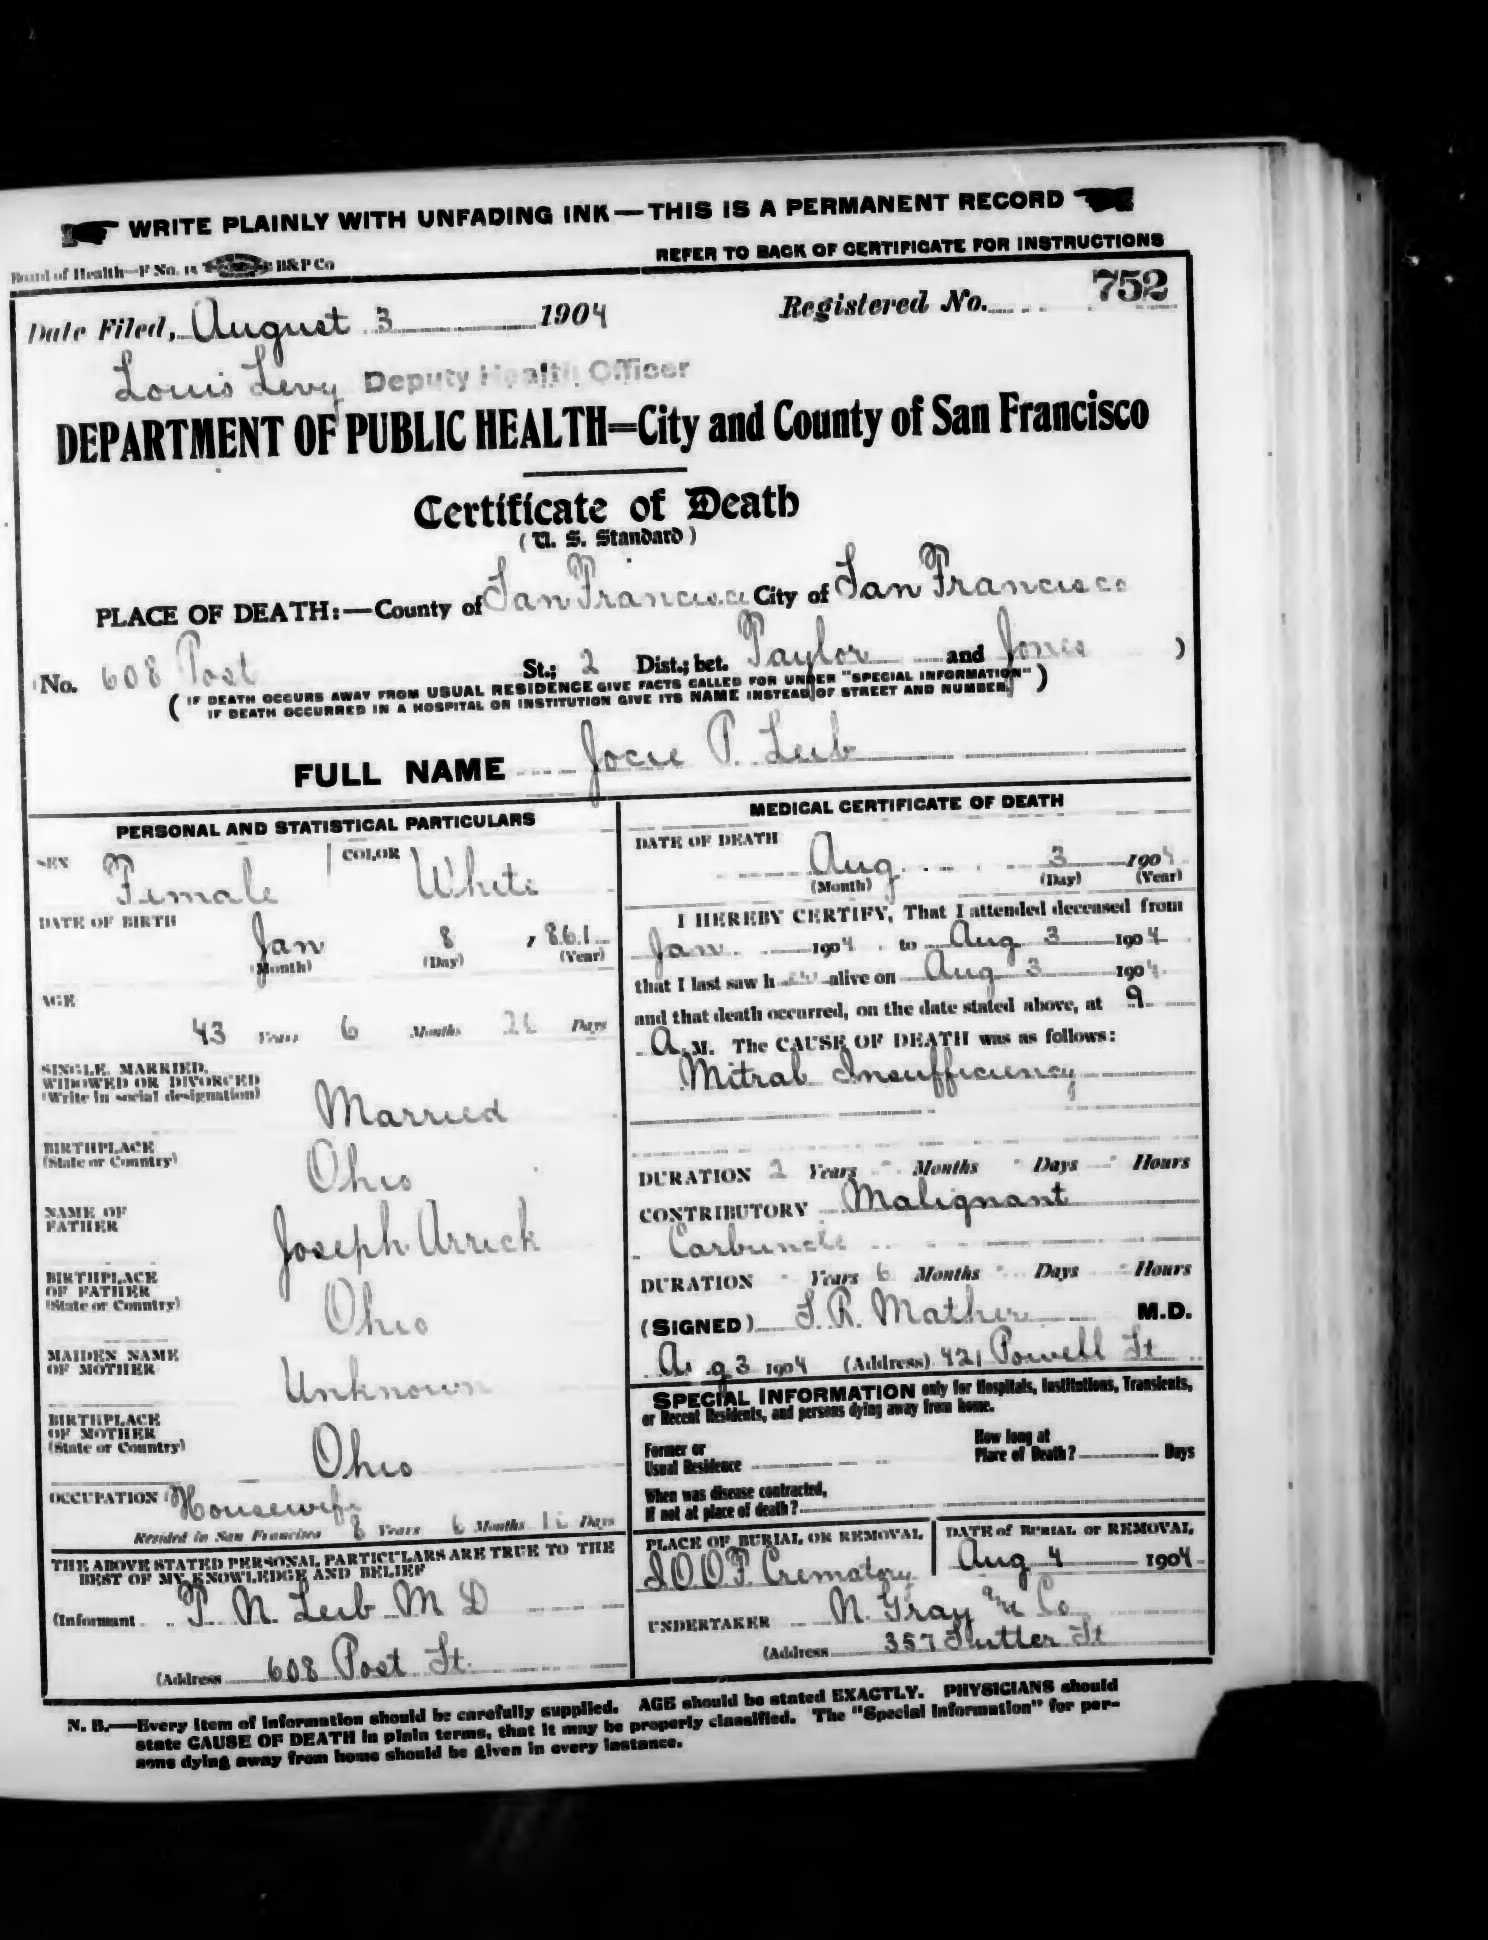 WRITE PLAINLY WITH UNFADING INK—THIS IS A PERMANENT RECORD
Board of Health—F No. 15 B&P Co
REFER TO BACK OF CERTIFICATE FOR INSTRUCTIONS
Date Filed, August 3 1904 Registered No. 752
Louis Levy Deputy Health Officer
DEPARTMENT OF PUBLIC HEALTH=City and County of San Francisco
Certificate of Death
(U. S. Standard)
PLACE OF DEATH:—County of San Francisco City of San Francisco
No. 608 Post St.; 2 Dist.; bet. Taylor and Jones )
( IF DEATH OCCURS AWAY FROM USUAL RESIDENCE GIVE FACTS CALLED FOR UNDER "SPECIAL INFORMATION" )
IF DEATH OCCURRED IN A HOSPITAL OR INSTITUTION GIVE ITS NAME INSTEAD OF STREET AND NUMBER.
FULL NAME Josie P. Leib
PERSONAL AND STATISTICAL PARTICULARS
SEX Female COLOR White
DATE OF BIRTH
Jan 8 , 861
(Month) (Day) (Year)
AGE
43 Years 6 Months 26 Days
SINGLE, MARRIED,
WIDOWED OR DIVORCED
(Write in social designation)
Married
BIRTHPLACE
(State or Country)
Ohio
NAME OF
FATHER
Joseph Arrick
BIRTHPLACE
OF FATHER
(State or Country)
Ohio
MAIDEN NAME
OF MOTHER
Unknown
BIRTHPLACE
OF MOTHER
(State or Country)
Ohio
OCCUPATION Housewife
Resided in San Francisco 8 Years 6 Months Days
THE ABOVE STATED PERSONAL PARTICULARS ARE TRUE TO THE
BEST OF MY KNOWLEDGE AND BELIEF
(Informant P. N. Leib M D
(Address 608 Post St.
MEDICAL CERTIFICATE OF DEATH
DATE OF DEATH
Aug 3 1904
(Month) (Day) (Year)
I HEREBY CERTIFY, That I attended deceased from
Jan 1904 to Aug 3 1904
that I last saw h er alive on Aug 3 1904
and that death occurred, on the date stated above, at 9
A. M. The CAUSE OF DEATH was as follows:
Mitral Insufficiency
DURATION 2 Years Months Days Hours
CONTRIBUTORY Malignant
Carbuncle
DURATION Years 6 Months Days Hours
(SIGNED) T. R. Mather M.D.
Aug 3 1904 (Address) 421 Powell St
SPECIAL INFORMATION only for Hospitals, Institutions, Transients,
or Recent Residents, and persons dying away from home.
Former or
Usual Residence
How long at
Place of Death? Days
When was disease contracted,
If not at place of death?
PLACE OF BURIAL OR REMOVAL
I.O.O.F. Crematory
DATE of BURIAL or REMOVAL
Aug 4 1904
UNDERTAKER N. Gray and Co
(Address 357 Sutter St
N. B.—Every item of information should be carefully supplied. AGE should be stated EXACTLY. PHYSICIANS should
state CAUSE OF DEATH in plain terms, that it may be properly classified. The "Special Information" for per-
sons dying away from home should be given in every instance.